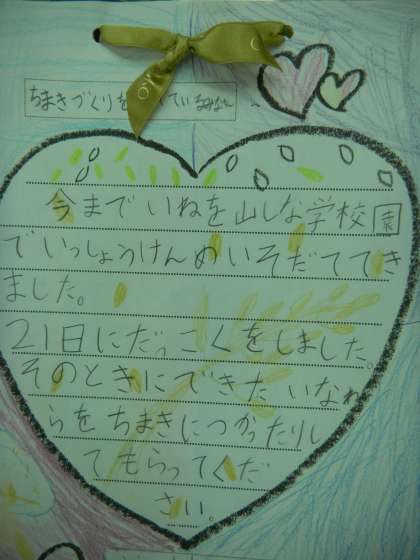 ちまきづくりを ているみな
今までいねを山しな学校園
でいっしょうけんめいそだててき
ました。
21日にだっこくをしました。
そのときにできた いなわ
らをちまきにつかったりし
てもらってくだ
さい。